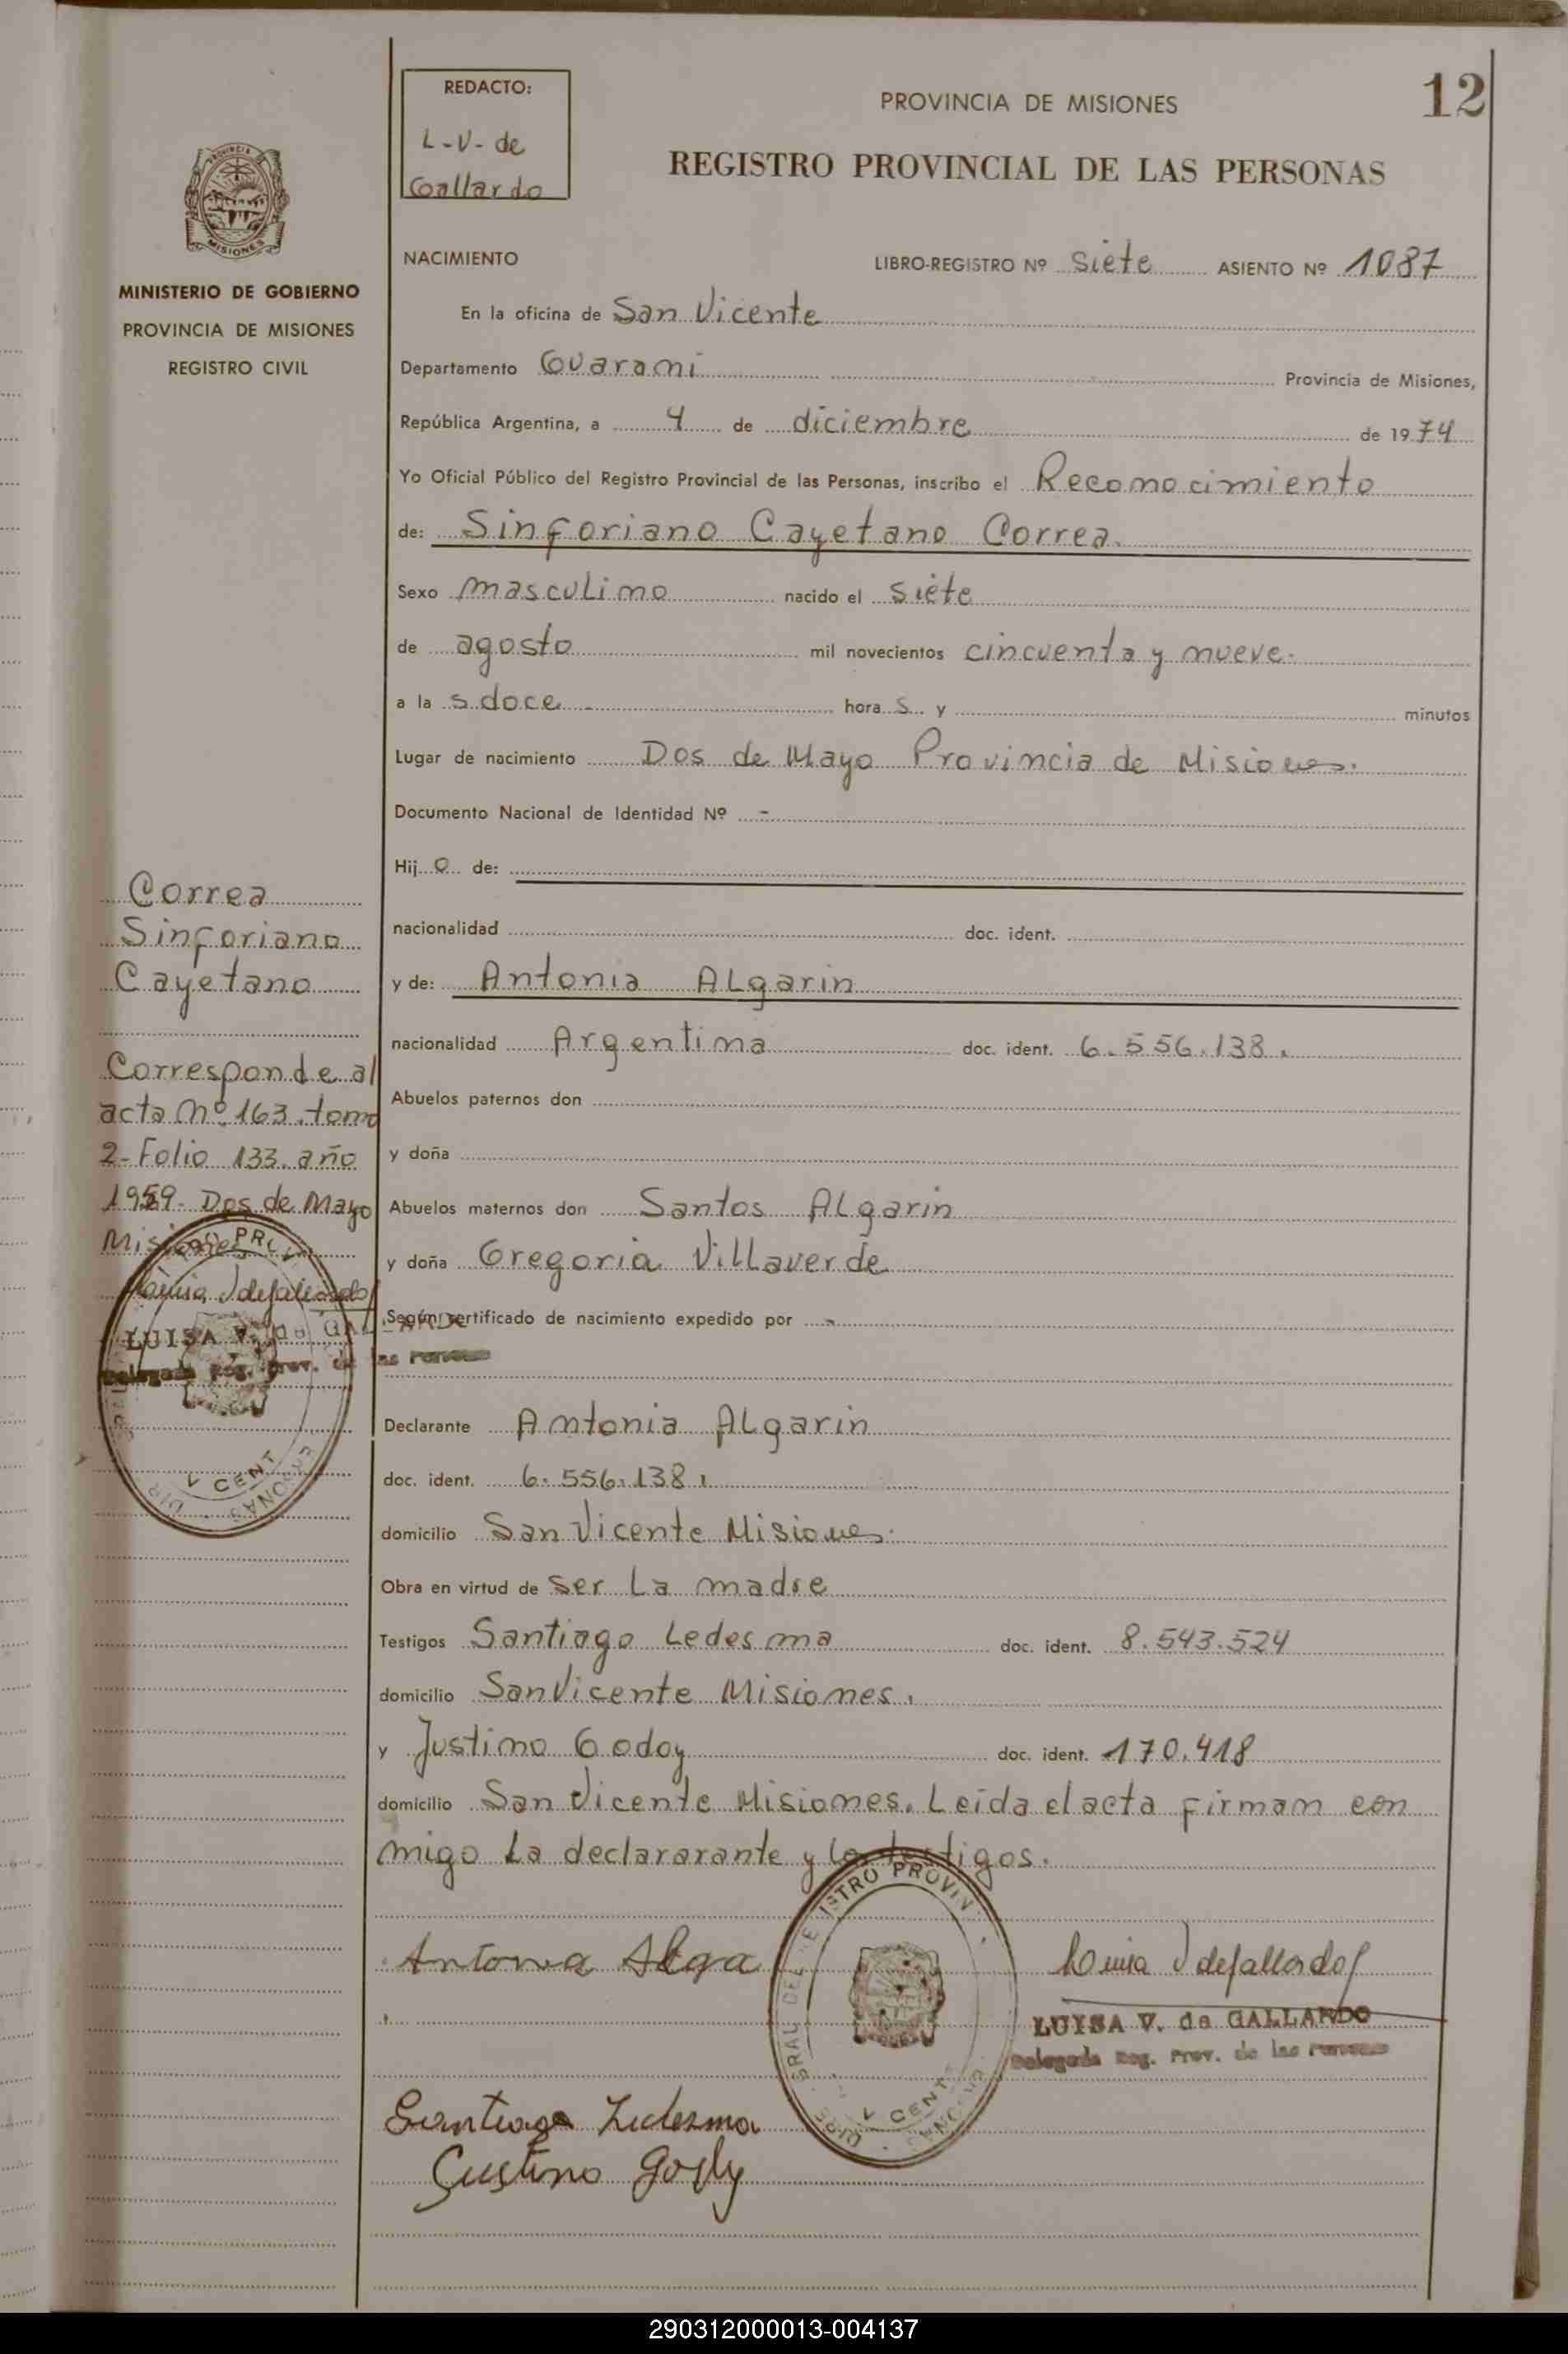 12
REDACTO:
L-V- de
Gallardo
PROVINCIA DE MISIONES
REGISTRO PROVINCIAL DE LAS PERSONAS
MISIONES
MINISTERIO DE GOBIERNO
PROVINCIA DE MISIONES
REGISTRO CIVIL
NACIMIENTO LIBRO-REGISTRO Nº siete ASIENTO Nº 1087
En la oficina de San Vicente
Departamento Guarami Provincia de Misiones,
República Argentina, a 4 de diciembre de 1974
Yo Oficial Público del Registro Provincial de las Personas, inscribo el Reconocimiento
de: Sinforiano Cayetano Correa.
Sexo masculino nacido el siete
de agosto mil novecientos cincuenta y nueve.
a la s doce - hora s y minutos
Lugar de nacimiento Dos de Mayo Provincia de Misiones.
Documento Nacional de Identidad Nº -
Hij o de:
nacionalidad doc. ident.
y de: Antonia Algarin
nacionalidad Argentina doc. ident. 6.556.138.
Abuelos paternos don
y doña
Abuelos maternos don Santos Algarin
y doña Gregoria Villaverde
Según certificado de nacimiento expedido por -
Declarante Antonia Algarin
doc. ident. 6.556.138.
domicilio San Vicente Misiones.
Obra en virtud de ser La madre
Testigos Santiago Ledesma doc. ident. 8.543.524
domicilio San Vicente Misiones.
y Justino Godoy doc. ident. 170.418
domicilio San Vicente Misiones. Leida el acta firman con
migo La declararante y los testigos.
Correa
Sinforiano
Cayetano
Corresponde al
acta nº 163. tomo
2- Folio 133. año
1959- Dos de Mayo
Misiones
LUISA V. de GALLARDO
Delegada Reg. Prov. de las Personas
Antonia Alga
LUISA V. de GALLARDO
Delegada Reg. Prov. de las Personas
Santiago Ledesma
Justino Godoy
290312000013-004137